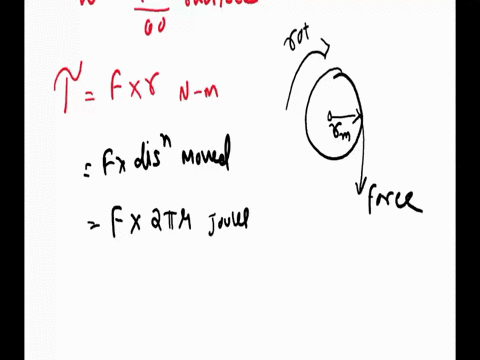 60
T = F x r N-m
= F x disⁿ moved
= F x 2πr Joules
rot
rm
force